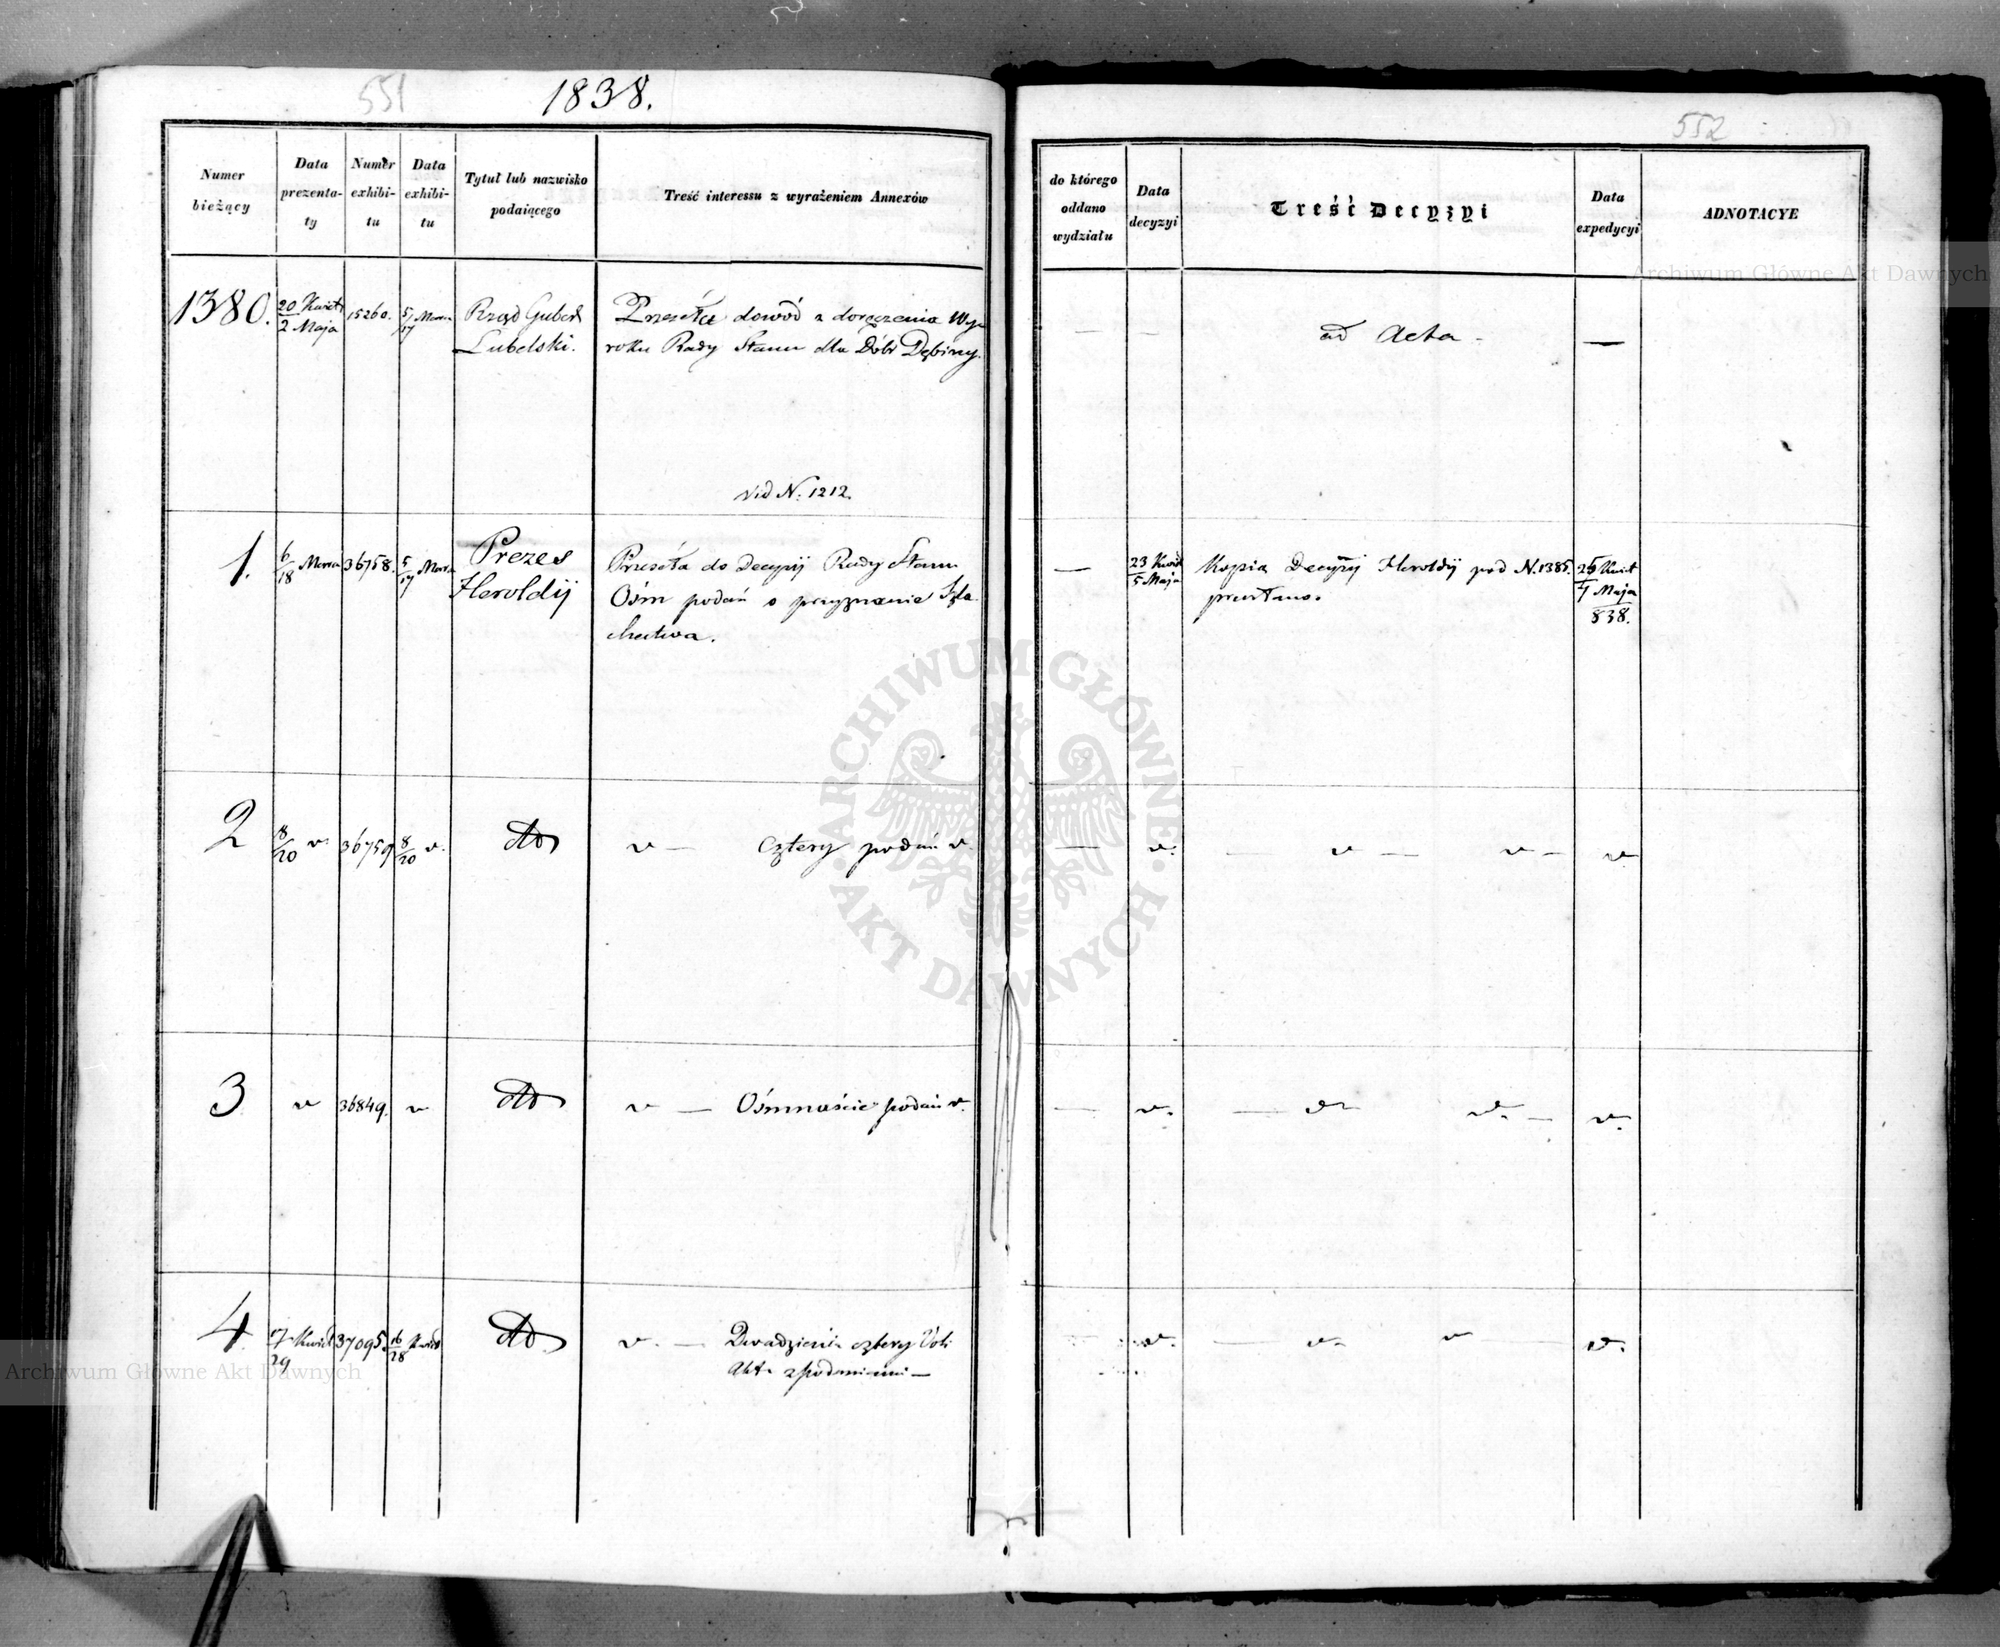 551
1838.
Numer bieżący
Data prezentaty
Numer exhibitu
Data exhibitu
Tytuł lub nazwisko podaiącego
Treść interessu z wyrażeniem Annexów
1380. 20 Kwiet 15260. 5 Marca Rząd Gubern Przesyła dowód z doręczenia Wy
2 Maja 17 Lubelski. roku Rady Stanu dla Dóbr Dębiny.
vid N. 1212.
1. 6/18 Marca 36758. 5/17 Marca Prezes Heroldij
Przesyła do Decyzij Rady Stanu
Ośm podań o przyznanie Szla
chectwa.
2 8/20 v. 36759 8/20 v. dto v — Cztery podań v
3 v 36849. v dto v — Ośmnaście podań v.
4. 17/29 Kwiet 37095. 16/28 Kwiet dto v. — Dwadzieścia cztery
Akt z podaniami —
552
do którego oddano wydziału
Data decyzyi
Treść Decyzyi
Data expedycyi
ADNOTACYE
— — ad Acta — —
— 23 Kwiet Kopia Decyzij Heroldij pod N. 1385. 25 Kwiet
5 Maja przesłano. 7 Maja
838.
— v. — v — v — v
— v. — v — v. — v.
v. — v. v — v.
Archiwum Główne Akt Dawnych
ARCHIWUM GŁÓWNE · AKT DAWNYCH ·
Archiwum Główne Akt Dawnych